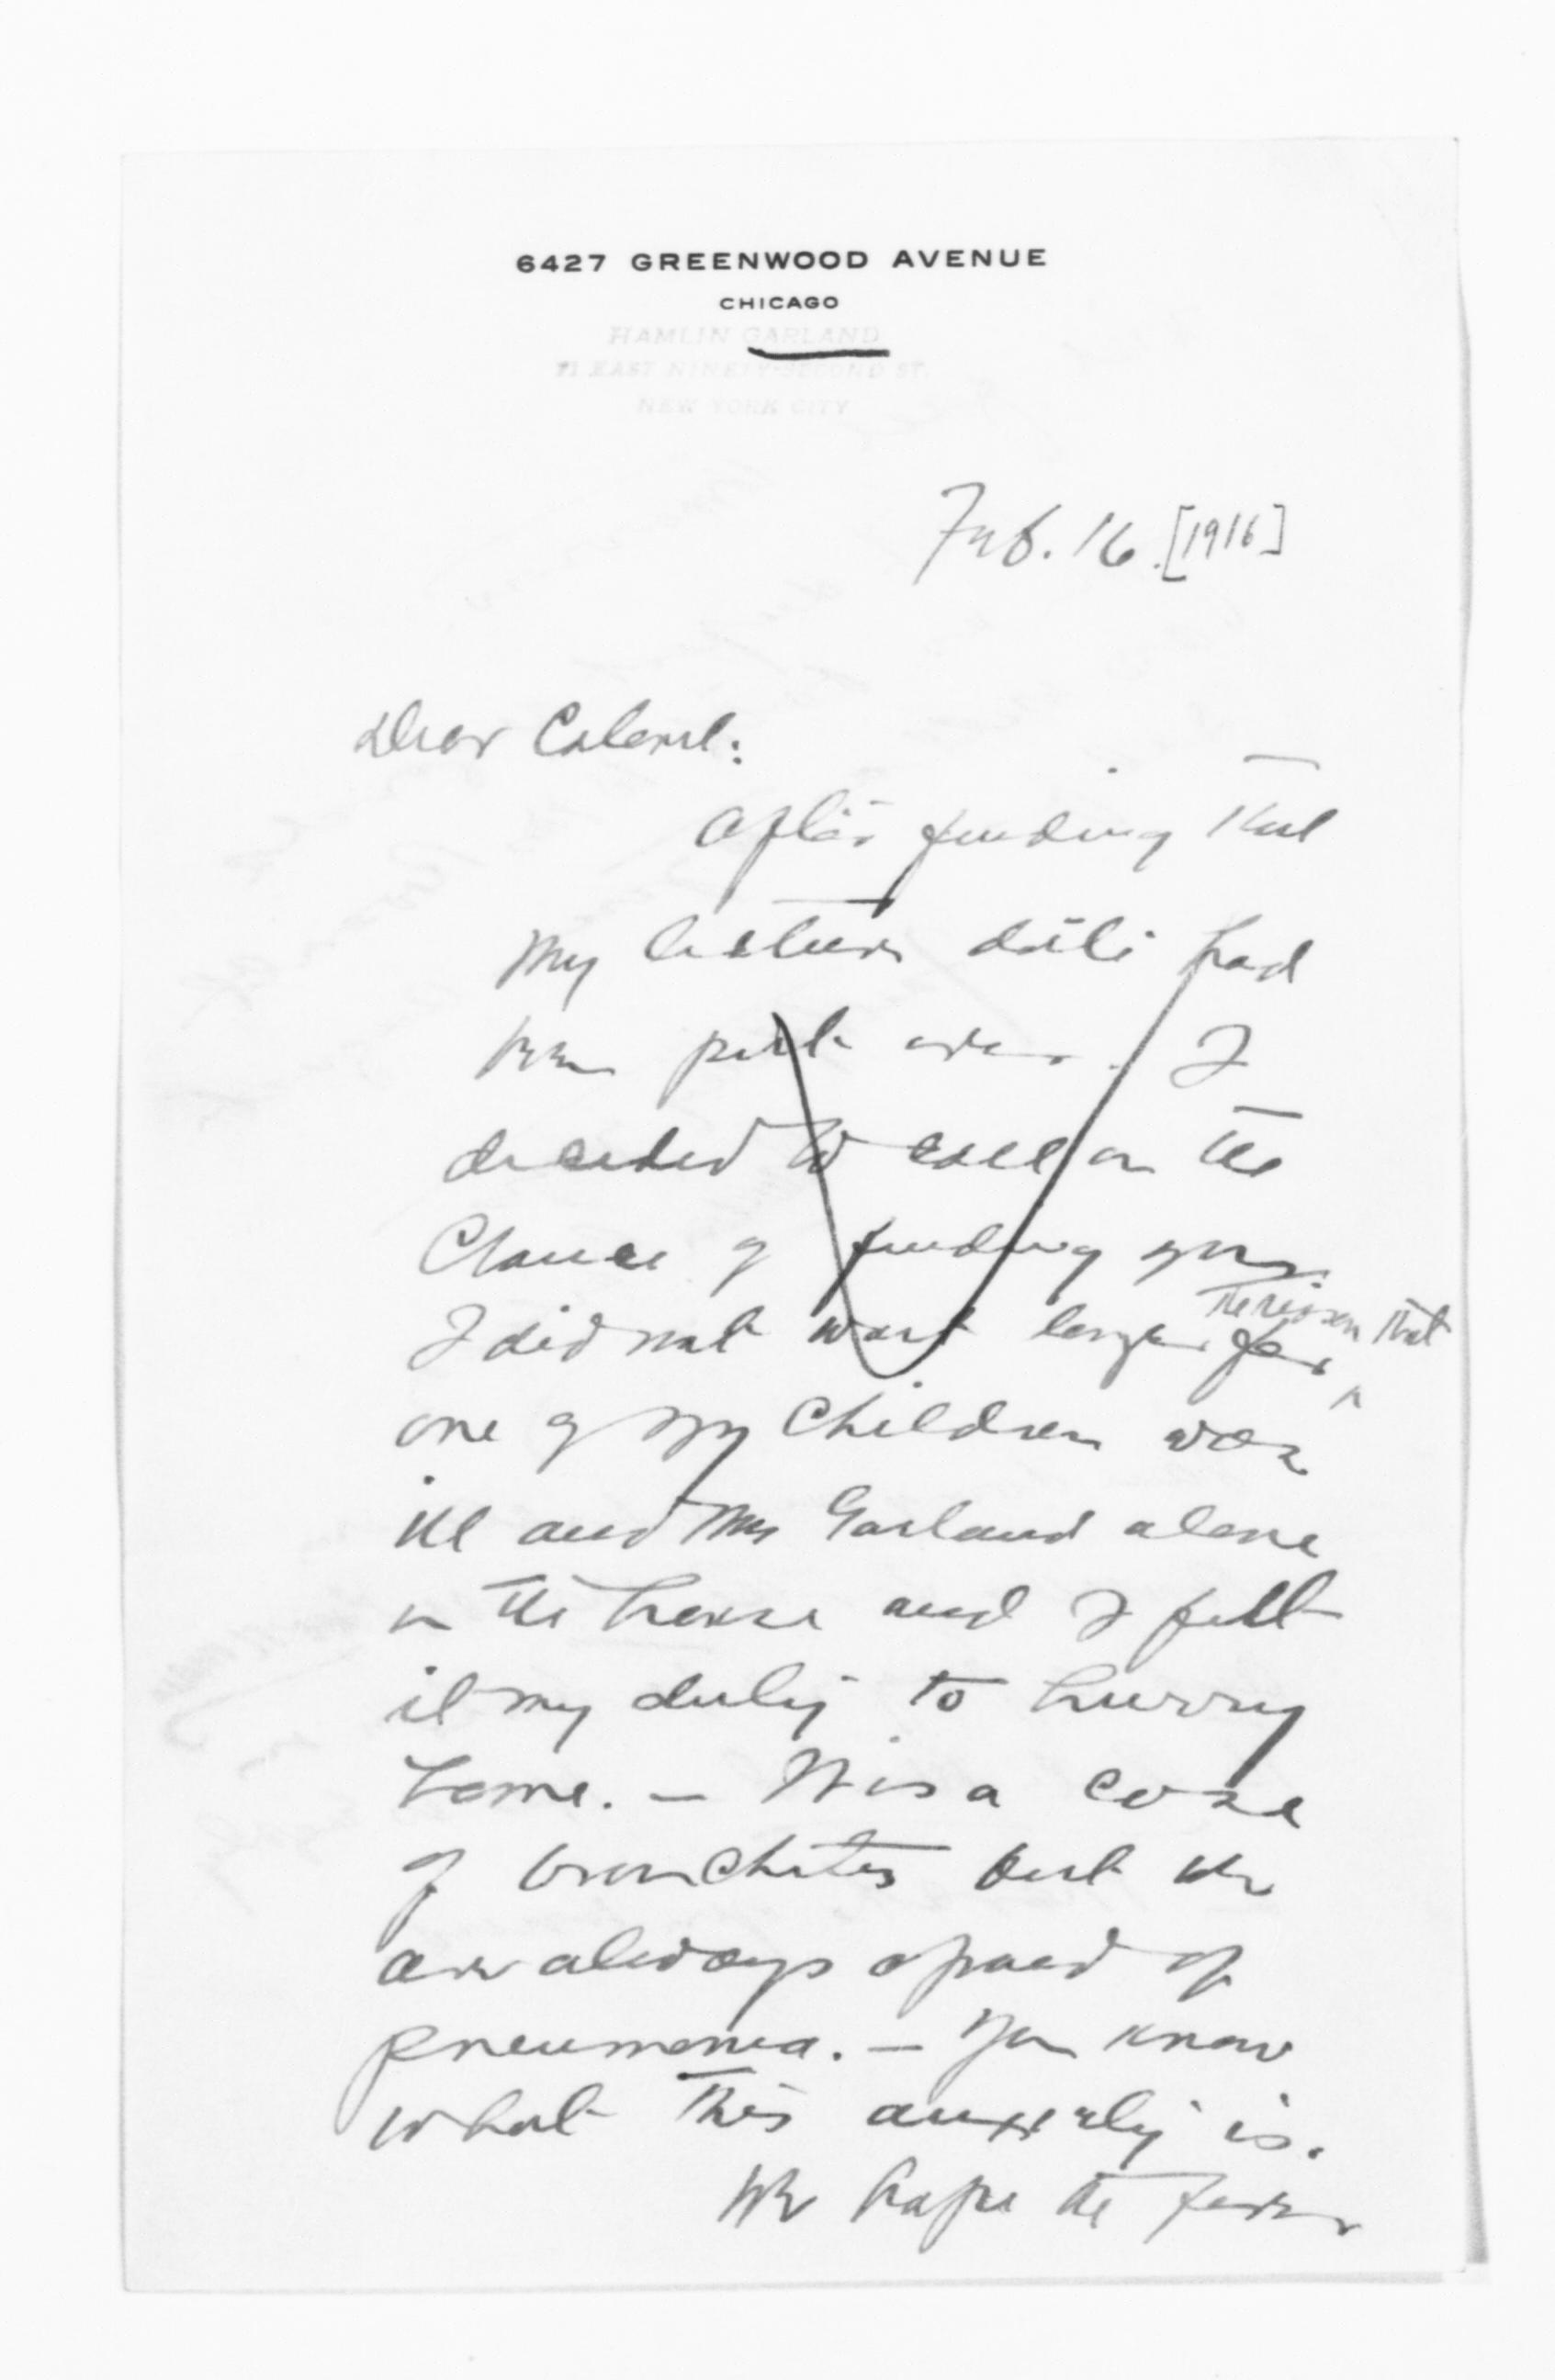 6427 GREENWOOD AVENUE
CHICAGO
HAMLIN GARLAND
71 EAST NINETY-SECOND ST.
NEW YORK CITY
Feb. 16. [1916]
Dear Colonel:
After finding that
my lecture date had
been put over. I
decided to call on the
chance of finding you.
I did not wait longer for the reason that
one of my children was
ill and Mrs Garland alone
in the house and I felt
it my duty to hurry
home. — It is a case
of bronchitis but we
are always afraid of
pneumonia. — You know
what this anxiety is.
We hope the fever